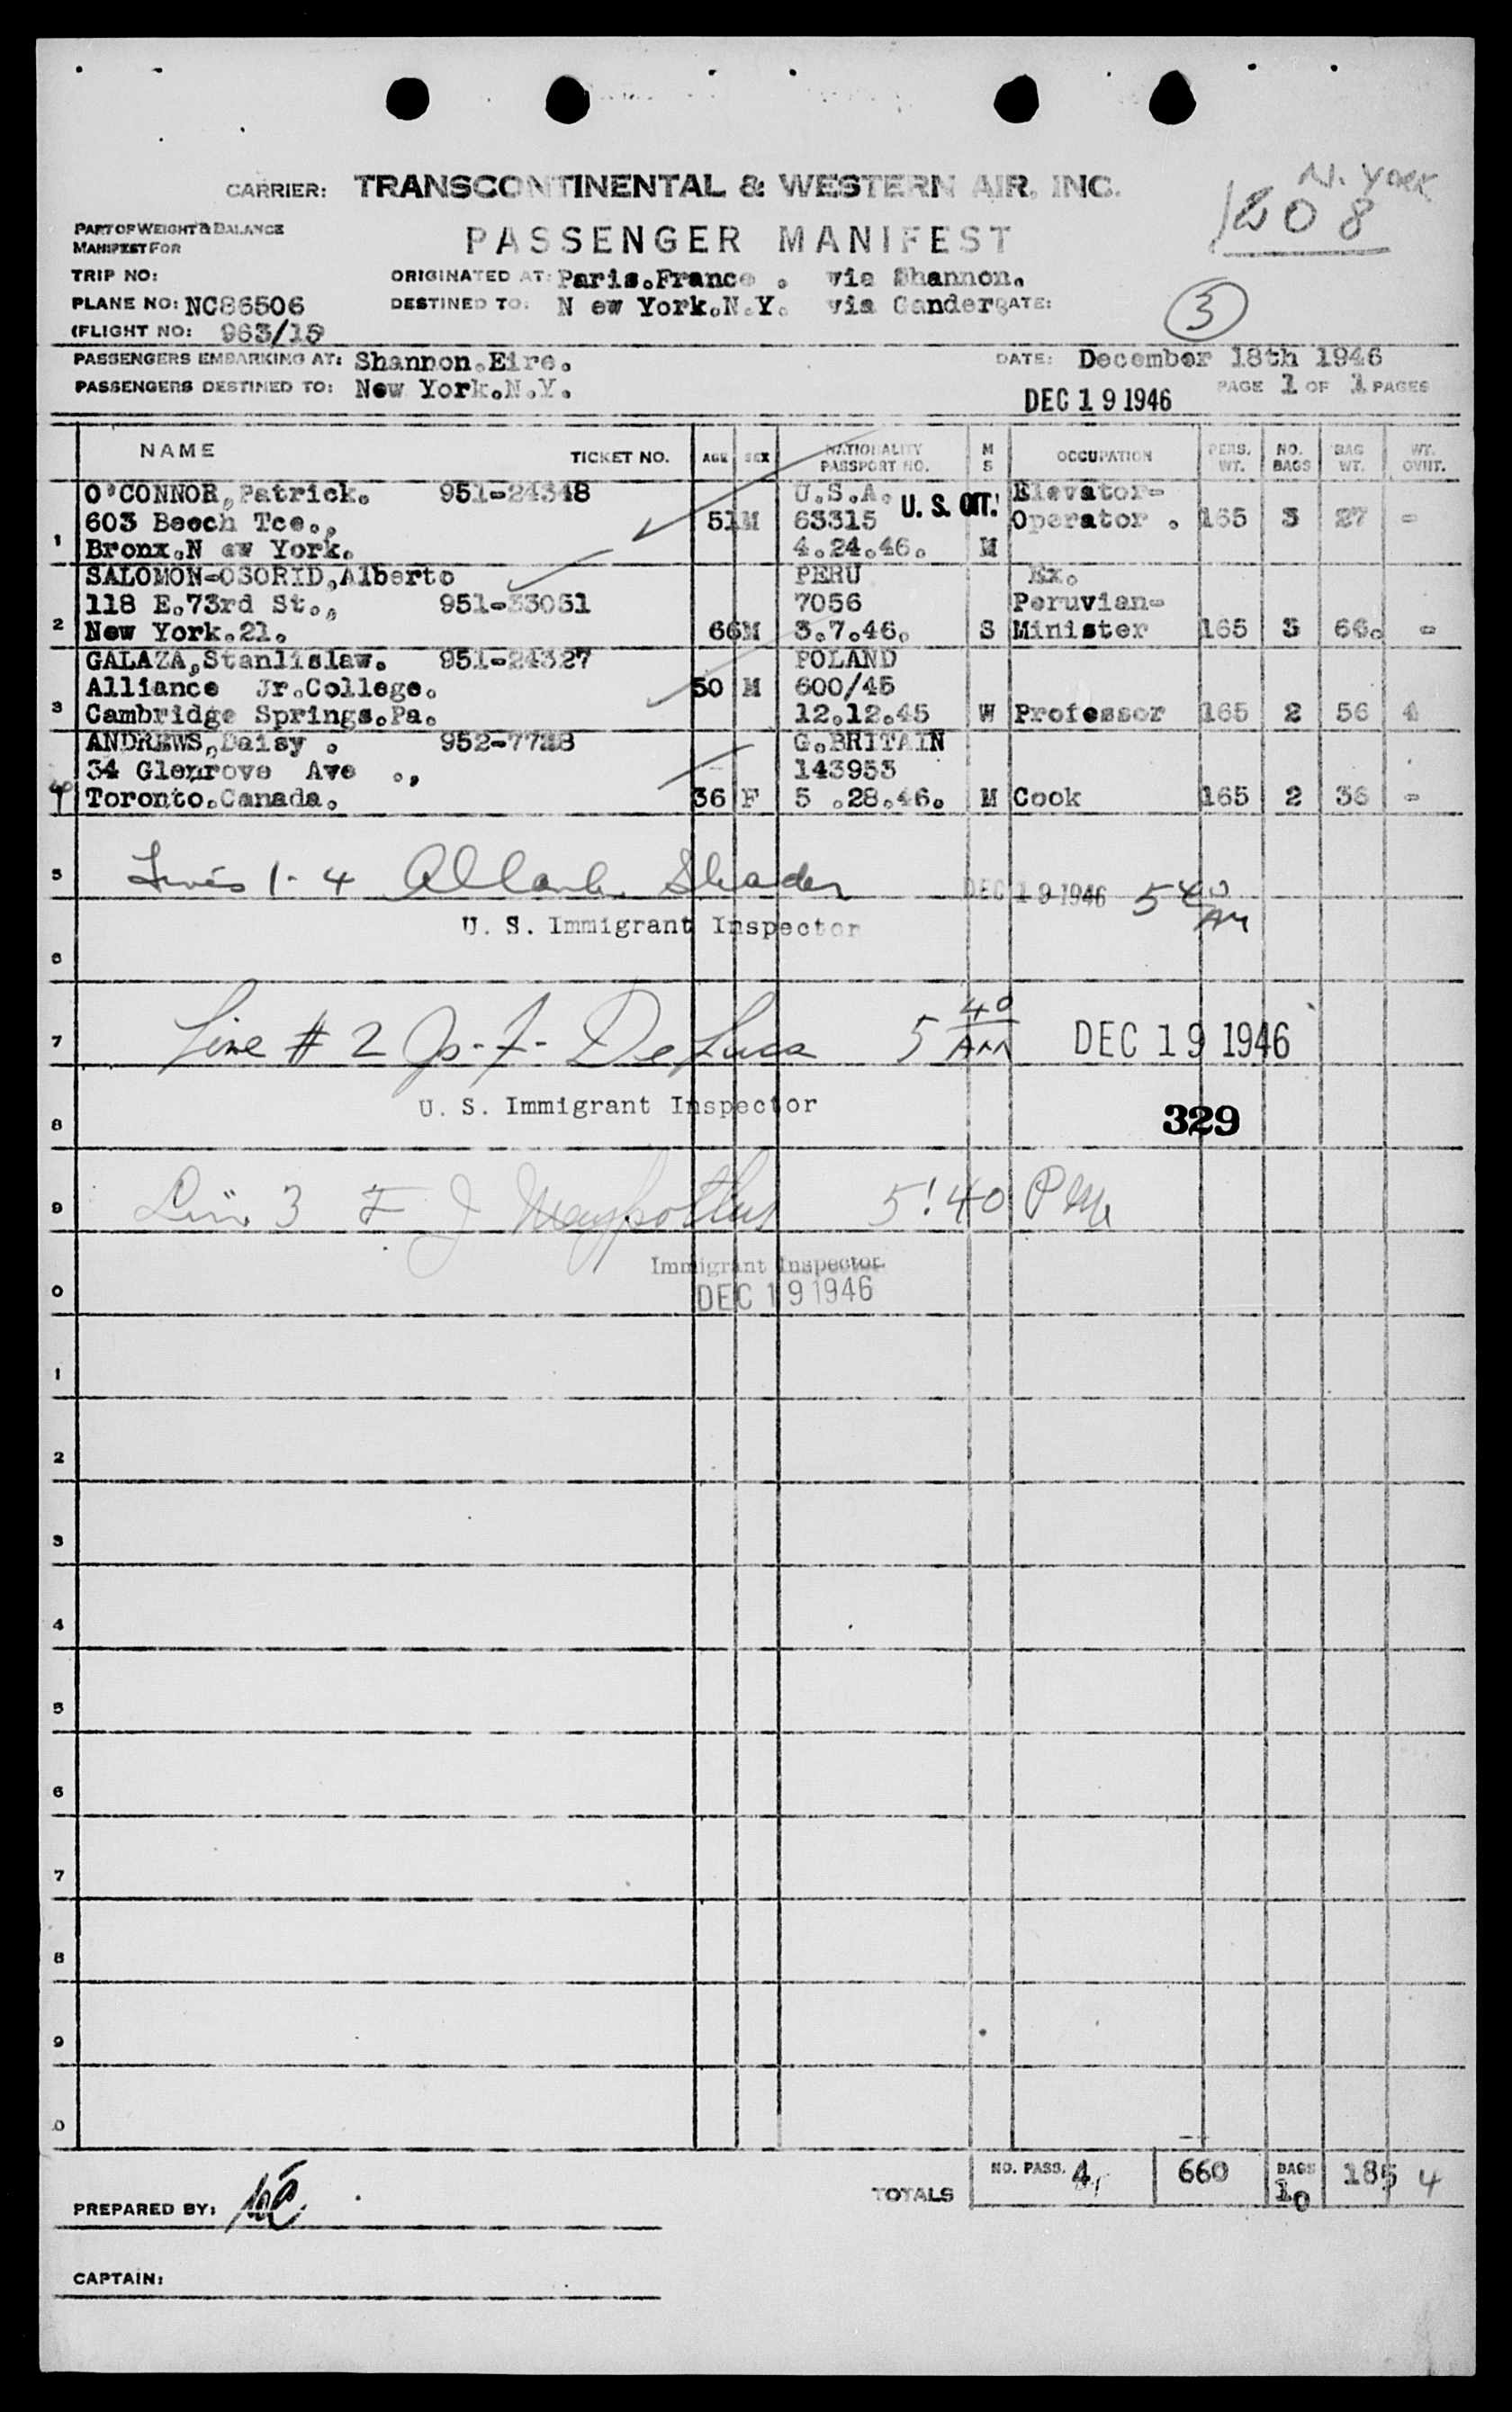 N. York
1208
CARRIER: TRANSCONTINENTAL & WESTERN AIR, INC.
PART OF WEIGHT & BALANCE
MANIFEST FOR
PASSENGER MANIFEST
TRIP NO:
ORIGINATED AT: Paris.France . via Shannon.
PLANE NO: NC86506
DESTINED TO: N ew York.N.Y. via Gander DATE:
3
(FLIGHT NO: 963/15
PASSENGERS EMBARKING AT: Shannon.Eire.
DATE: December 18th 1946
PASSENGERS DESTINED TO: New York.N.Y.
DEC 19 1946
PAGE 1 OF 1 PAGES
NAME TICKET NO. AGE SEX NATIONALITY PASSPORT NO. M S OCCUPATION PERS. WT. NO. BAGS BAG WT. WT. OVHT.
O'CONNOR,Patrick. 951-24348 U.S.A. U. S. CIT. Elevator-
603 Beech Tce., 51 M 63315 Operator . 165 3 27 -
1 Bronx.N ew York. 4.24.46. M
SALOMON-OSORID,Alberto PERU Ex.
118 E.73rd St., 951-33051 7056 Peruvian-
2 New York.21. 66 M 3.7.46. S Minister 165 3 66. -
GALAZA,Stanlislaw. 951-24327 POLAND
Alliance Jr.College. 50 M 600/45
3 Cambridge Springs.Pa. 12.12.45 W Professor 165 2 56 4
ANDREWS,Daisy . 952-7728 G.BRITAIN
34 Glenrove Ave ., 143953
Toronto.Canada. 36 F 5 .28.46. M Cook 165 2 36 -
5 Lines 1-4 Shader DEC 19 1946 5 40 AM
U. S. Immigrant Inspector
6
7 Line # 2 De Luca 5 40 AM DEC 19 1946
U. S. Immigrant Inspector
8 329
9 Line 3 F J 5:40 PM
Immigrant Inspector
0 DEC 19 1946
1
2
3
4
5
6
7
8
9
0
TOTALS NO. PASS. 4 660 BAGS 10 185 4
PREPARED BY:
CAPTAIN: